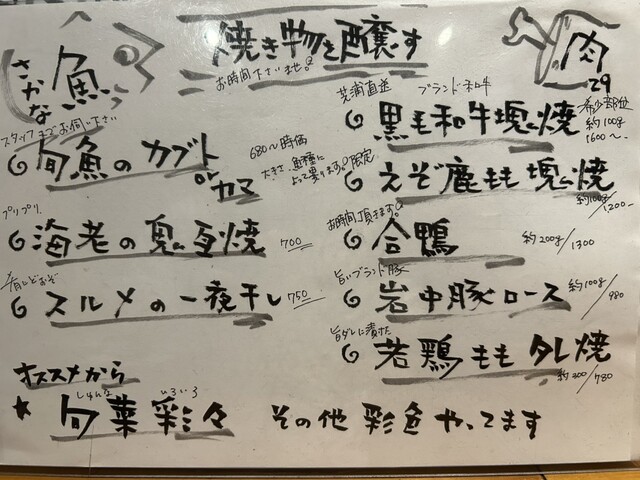 焼き物を醸す
お時間下さいませ。
魚
さかな
スタッフまでお伺い下さい
旬魚のカブト
or
カマ
680〜時価
大きさ、魚種に
よって異ります。
プリプリ
海老の鬼瓦焼
700
スルメの一夜干し
750
肉
29
芝浦直送
ブランド和牛
黒毛和牛塊焼
希少部位
約100g
1600〜
限定
えぞ鹿もも塊焼
約100g/1200
お時間頂きます。
合鴨
約200g/1300
旨いブランド豚
岩中豚ロース
約100g/980
旨ダレに漬けた
若鶏ももタレ焼
約200/780
オススメから
★旬菜彩々
しゅんな
いろいろ
その他彩色やってます